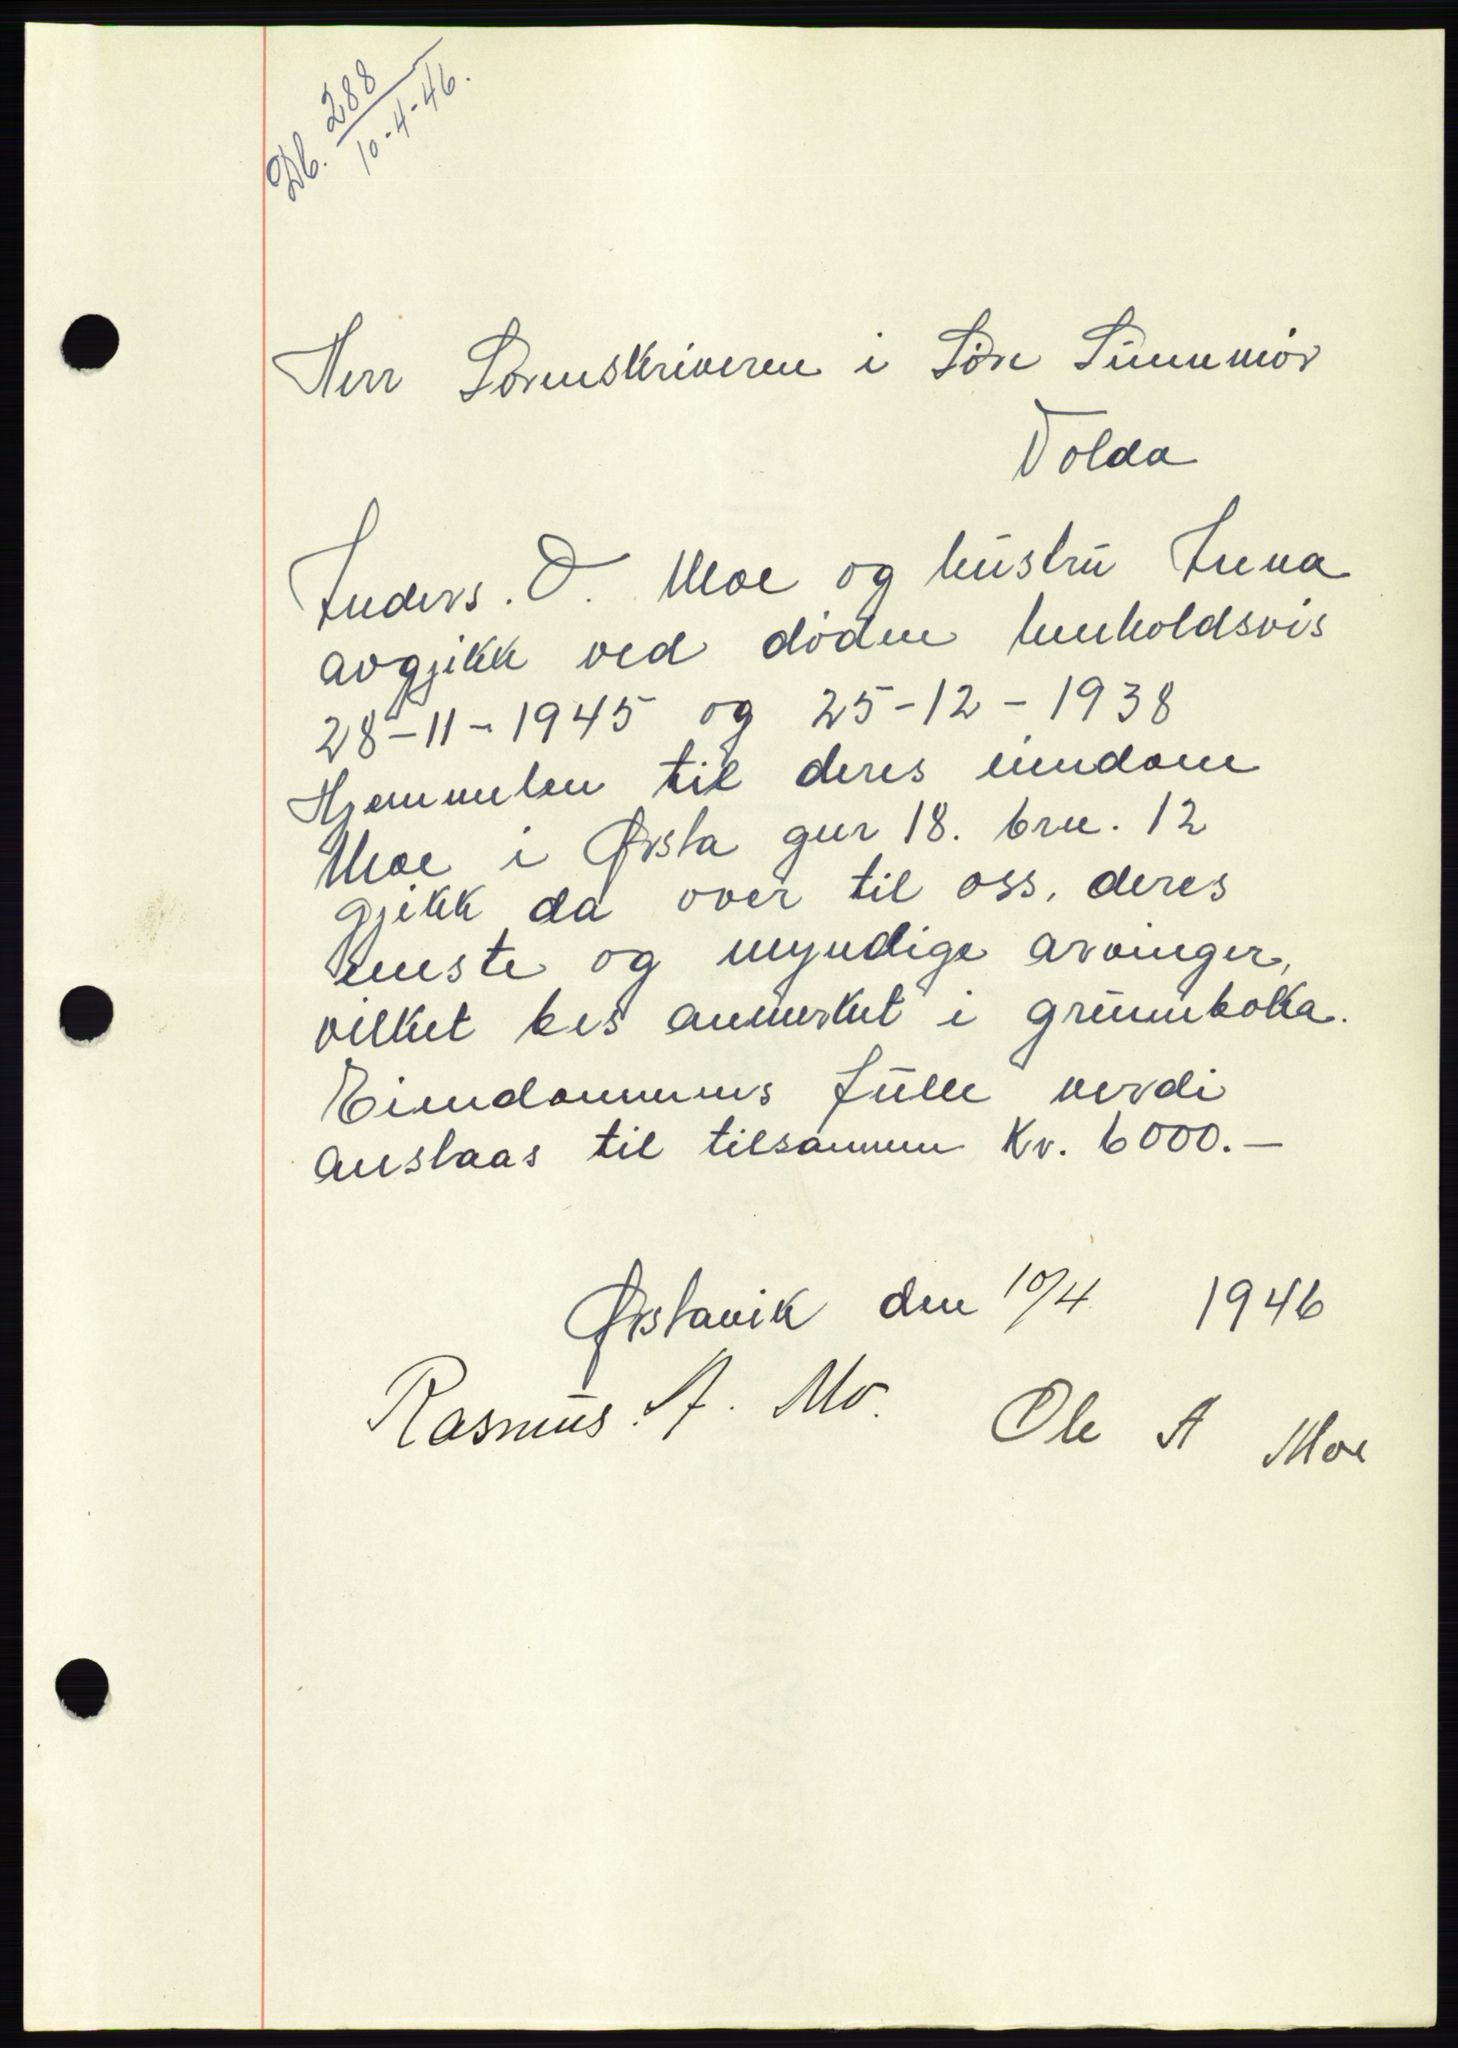 Db. 288
10-4-46.
Herr Sorenskriveren i Søre Sunnmör
Volda
Anders. O. Moe og hustru Anna
avgjikk ved döden henholdsvis
28-11-1945 og 25-12-1938
Hjemmelen til deres eiendom
Moe i Ørsta gnr 18. brn. 12
gjikk da over til oss, deres
eneste og myndige arvinger,
vilket bes anmerket i grunnboka.
Eiendommens fulle verdi
anslaas til tilsammen Kr. 6000.—
Ørstavik den 10/4 1946
Rasmus. A. Mo. Ole A Moe